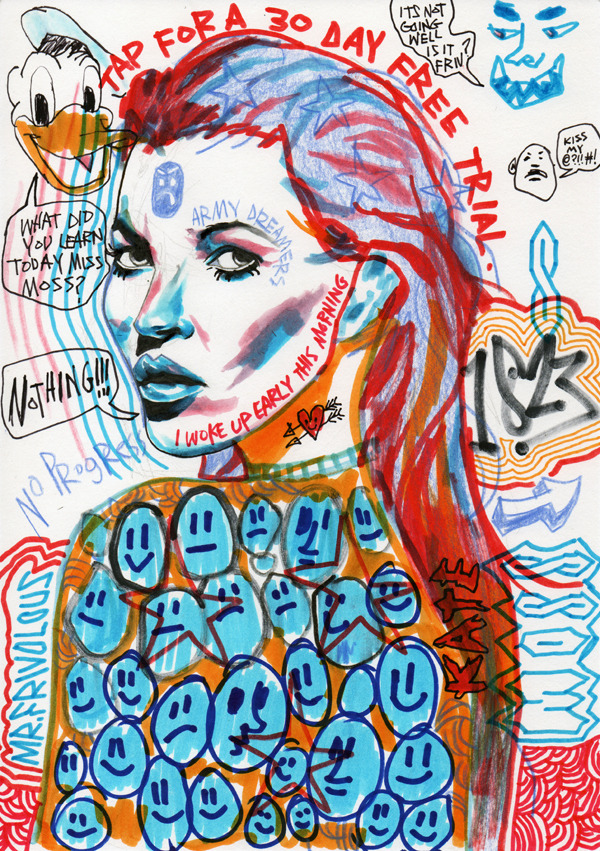 TAP FOR A 30 DAY FREE TRIAL.
ITS NOT
GOING
WELL
IS IT ?
FRIV
KISS
MY
@?!!#!
WHAT DID
YOU LEARN
TODAY MISS
MOSS?
ARMY DREAMERS
NOTHING!!!
I WOKE UP EARLY THIS MORNING
NO PROGRESS
KATE
MR.FRIVOLOUS